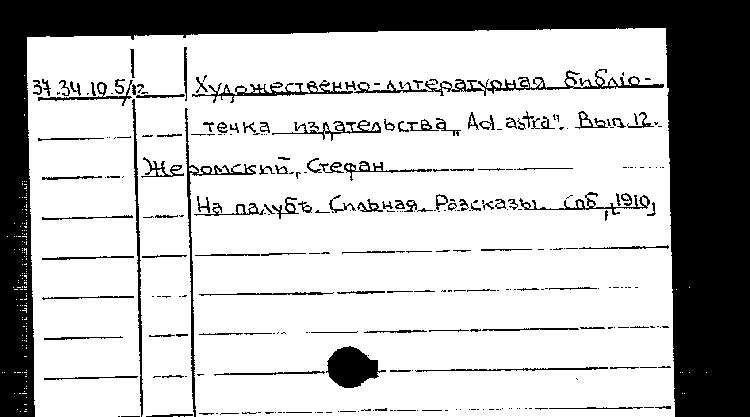 37.34.10.5/12 Художественно-литературная библіо-
течка издательства „Ad astra". Вып. 12.
Жеромский, Стефан
На палубѣ. Сильная. Разсказы. Спб, [1910]